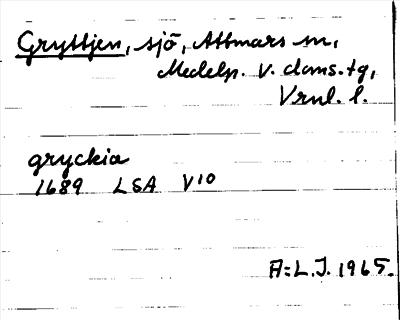 Gryttjen, sjö, Attmars sn,
Medelp. V. doms. tg,
Vrnl. l.
gryckia
1689 LSA V10
A:L.J. 1965.